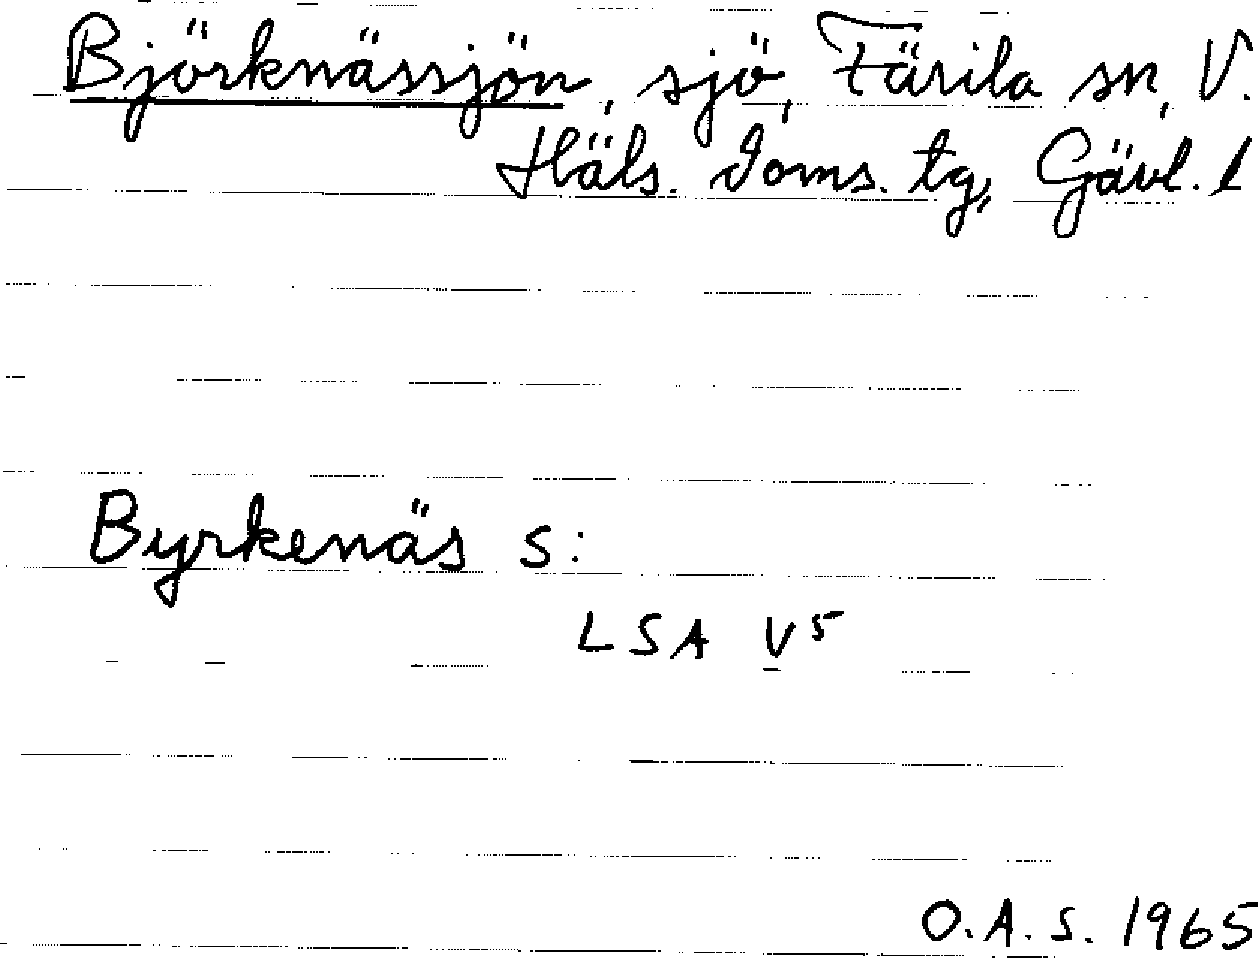 Björknässjön, sjö, Färila sn, V.
Häls. doms. tg, Gävl. l
Byrkenäs s:
LSA V5
O.A.S. 1965